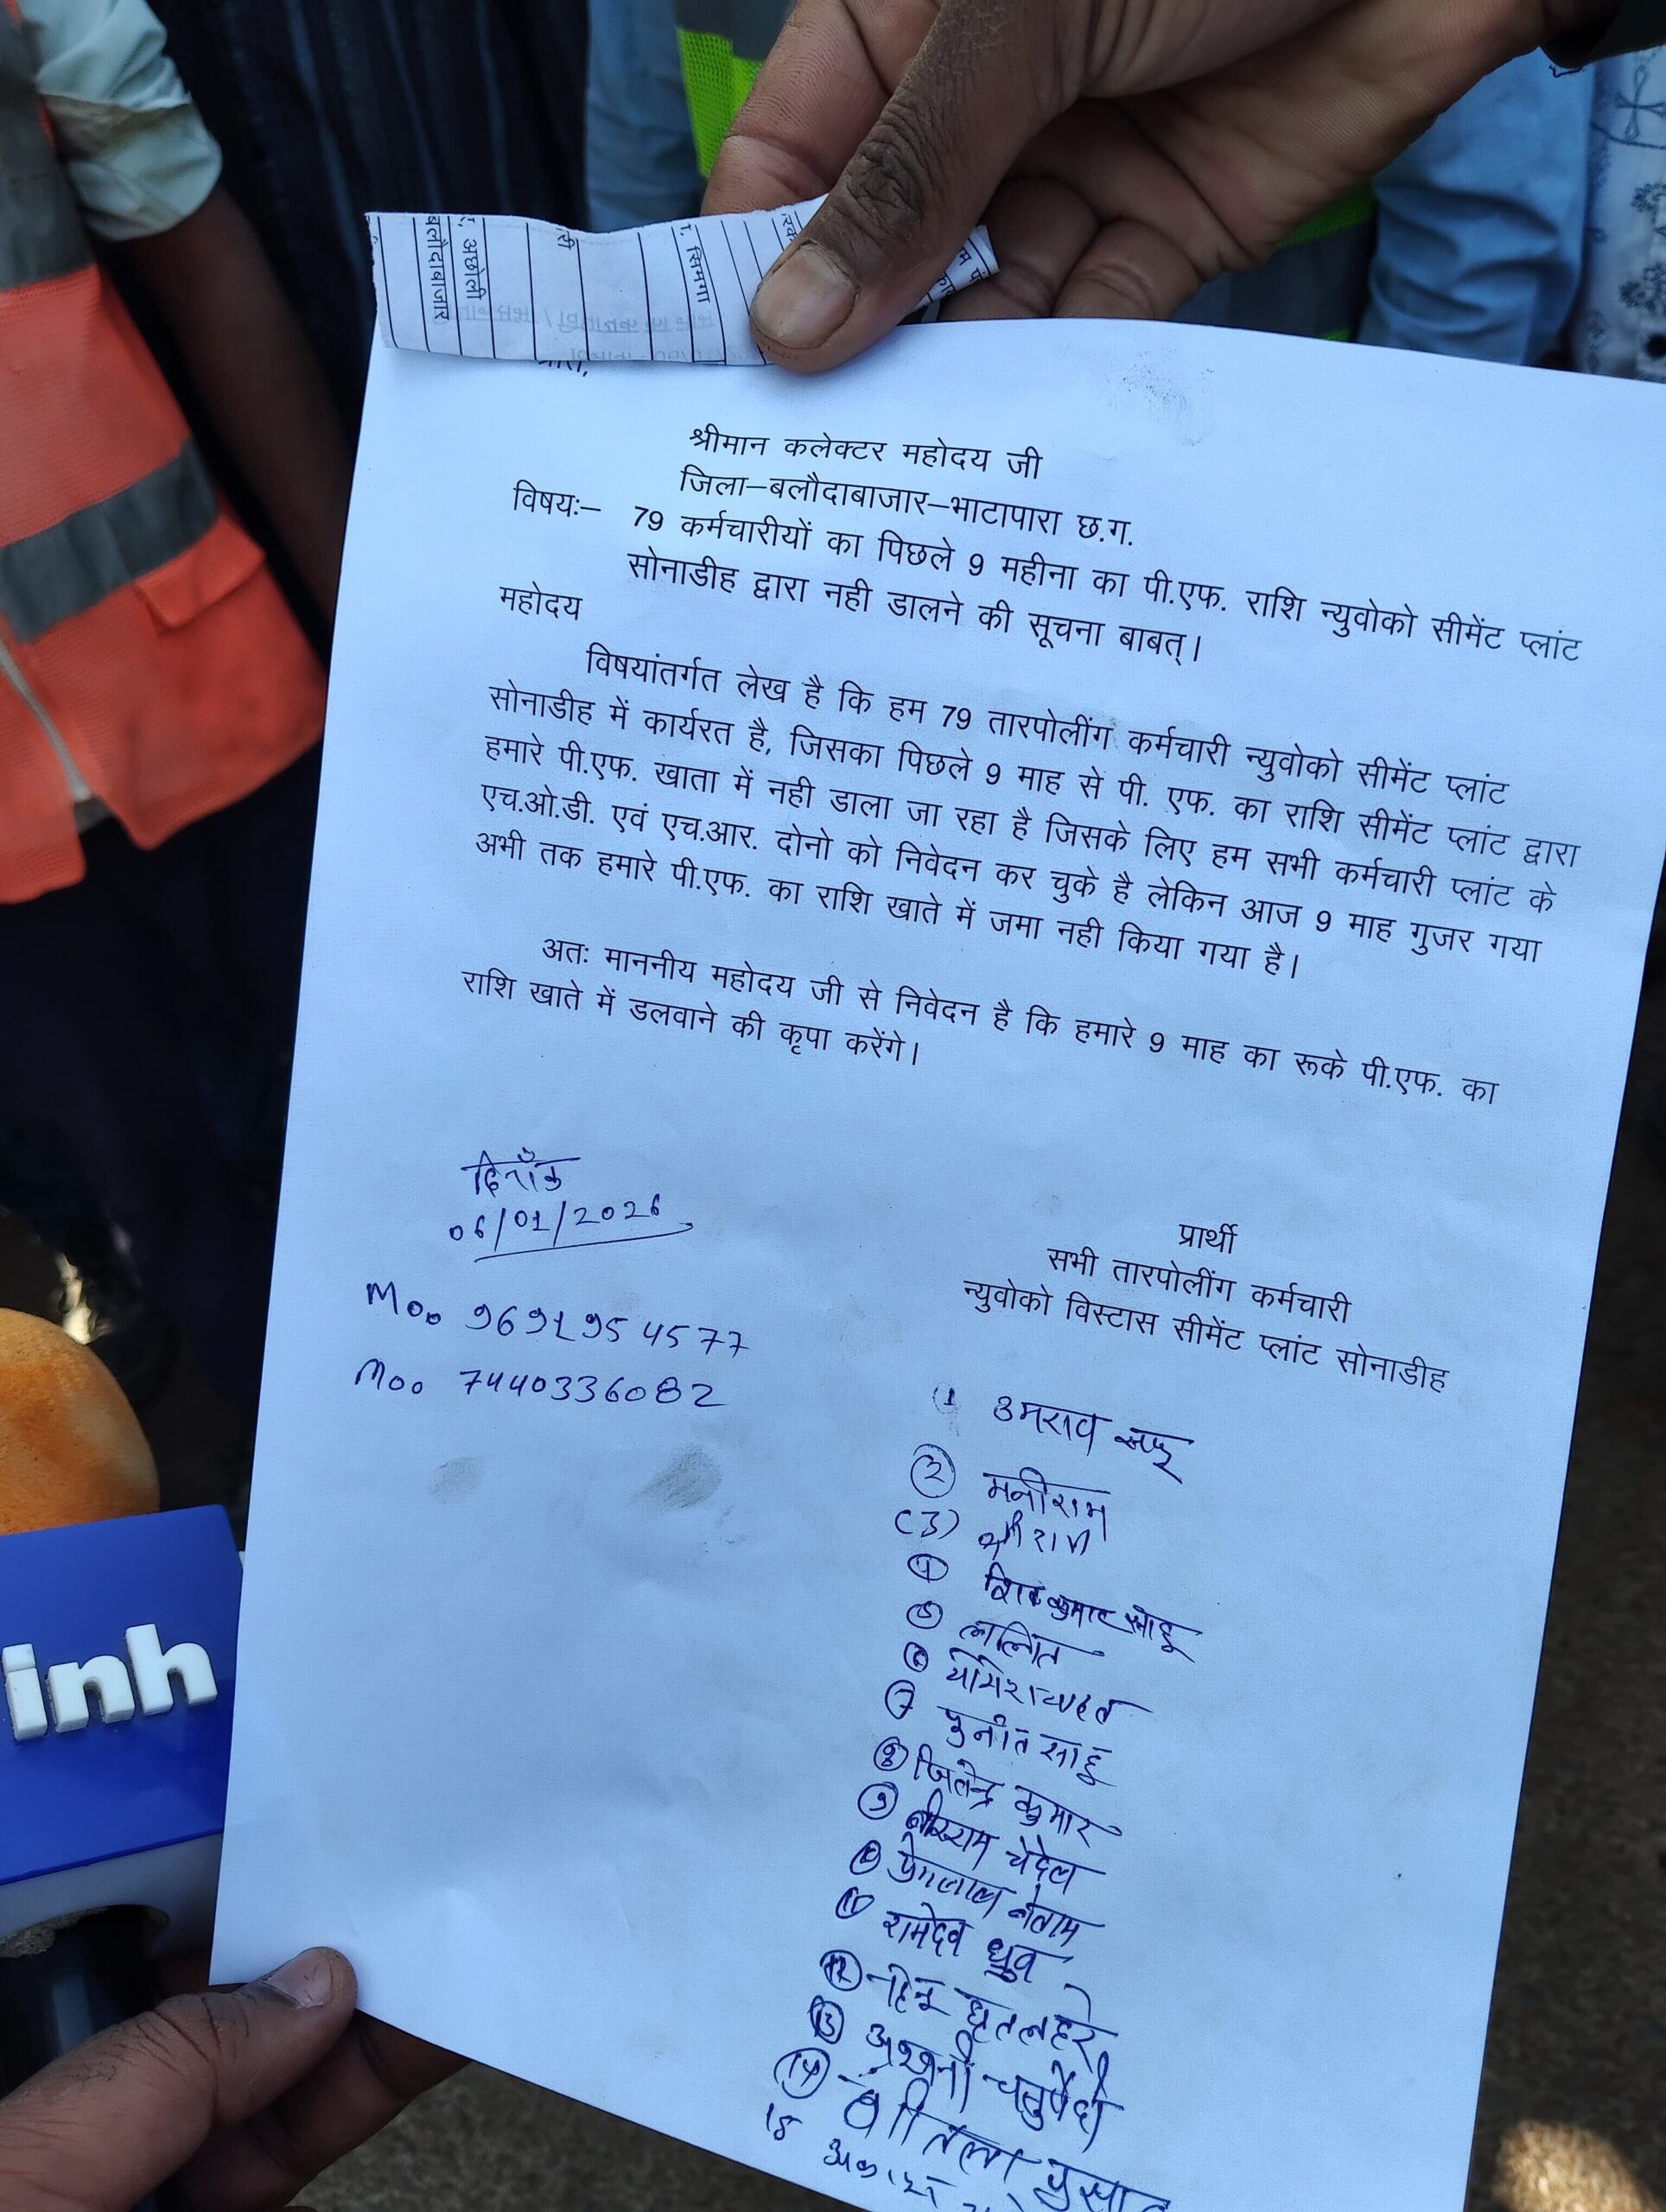 बलौदाबाजार
अछोली
सिमगा
श्रीमान कलेक्टर महोदय जी
जिला–बलौदाबाजार–भाटापारा छ.ग.
विषयः– 79 कर्मचारीयों का पिछले 9 महीना का पी.एफ. राशि न्युवोको सीमेंट प्लांट
सोनाडीह द्वारा नही डालने की सूचना बाबत्।
महोदय
विषयांतर्गत लेख है कि हम 79 तारपोलींग कर्मचारी न्युवोको सीमेंट प्लांट
सोनाडीह में कार्यरत है, जिसका पिछले 9 माह से पी. एफ. का राशि सीमेंट प्लांट द्वारा
हमारे पी.एफ. खाता में नही डाला जा रहा है जिसके लिए हम सभी कर्मचारी प्लांट के
एच.ओ.डी. एवं एच.आर. दोनो को निवेदन कर चुके है लेकिन आज 9 माह गुजर गया
अभी तक हमारे पी.एफ. का राशि खाते में जमा नही किया गया है।
अतः माननीय महोदय जी से निवेदन है कि हमारे 9 माह का रूके पी.एफ. का
राशि खाते में डलवाने की कृपा करेंगे।
दिनाँक
06/01/2026
Moo 9691954577
Moo 7440336082
प्रार्थी
सभी तारपोलींग कर्मचारी
न्युवोको विस्टास सीमेंट प्लांट सोनाडीह
1 उमराव साहू
2 मनीराम
(3) श्रीराम
4 शिव कुमार साहू
5 ललित
6
7 पुनीत साहू
8 जितेन्द्र कुमार
9 चंदेल
10 प्रेमलाल नेताम
11 रामदेव ध्रुव
12 धृतलहरे
13 अश्वनी चतुर्वेदी
14
15
inh